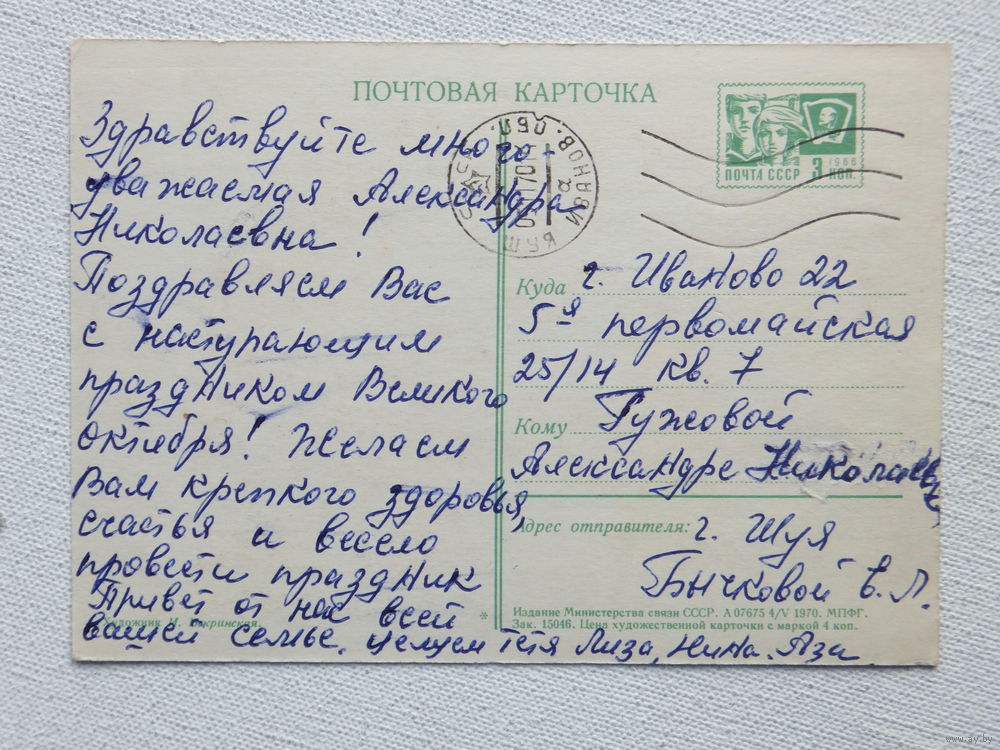 ПОЧТОВАЯ КАРТОЧКА
Здравствуйте много-
уважаемая Александра
Николаевна!
Поздравляем Вас
с наступающим
праздником Великого
Октября! Желаем
Вам крепкого здоровья,
счастья и весело
провести праздник
Привет от нас всей
вашей семье. целуем тётя Лиза, Нина. Аза
Художник И.
ПОЧТА СССР 3 КОП.
1966
ИВАНОВ. ОБЛ.
ШУЯ
Куда г. Иваново 22
5я первомайская
25/14 кв. 7
Кому Гужовой
Александре Николаевне
Адрес отправителя: г. Шуя
Бычковой Е. Л.
Издание Министерства связи СССР. А 07675 4/V 1970. МПФГ.
Зак. 15046. Цена художественной карточки с маркой 4 коп.
www.ay.by